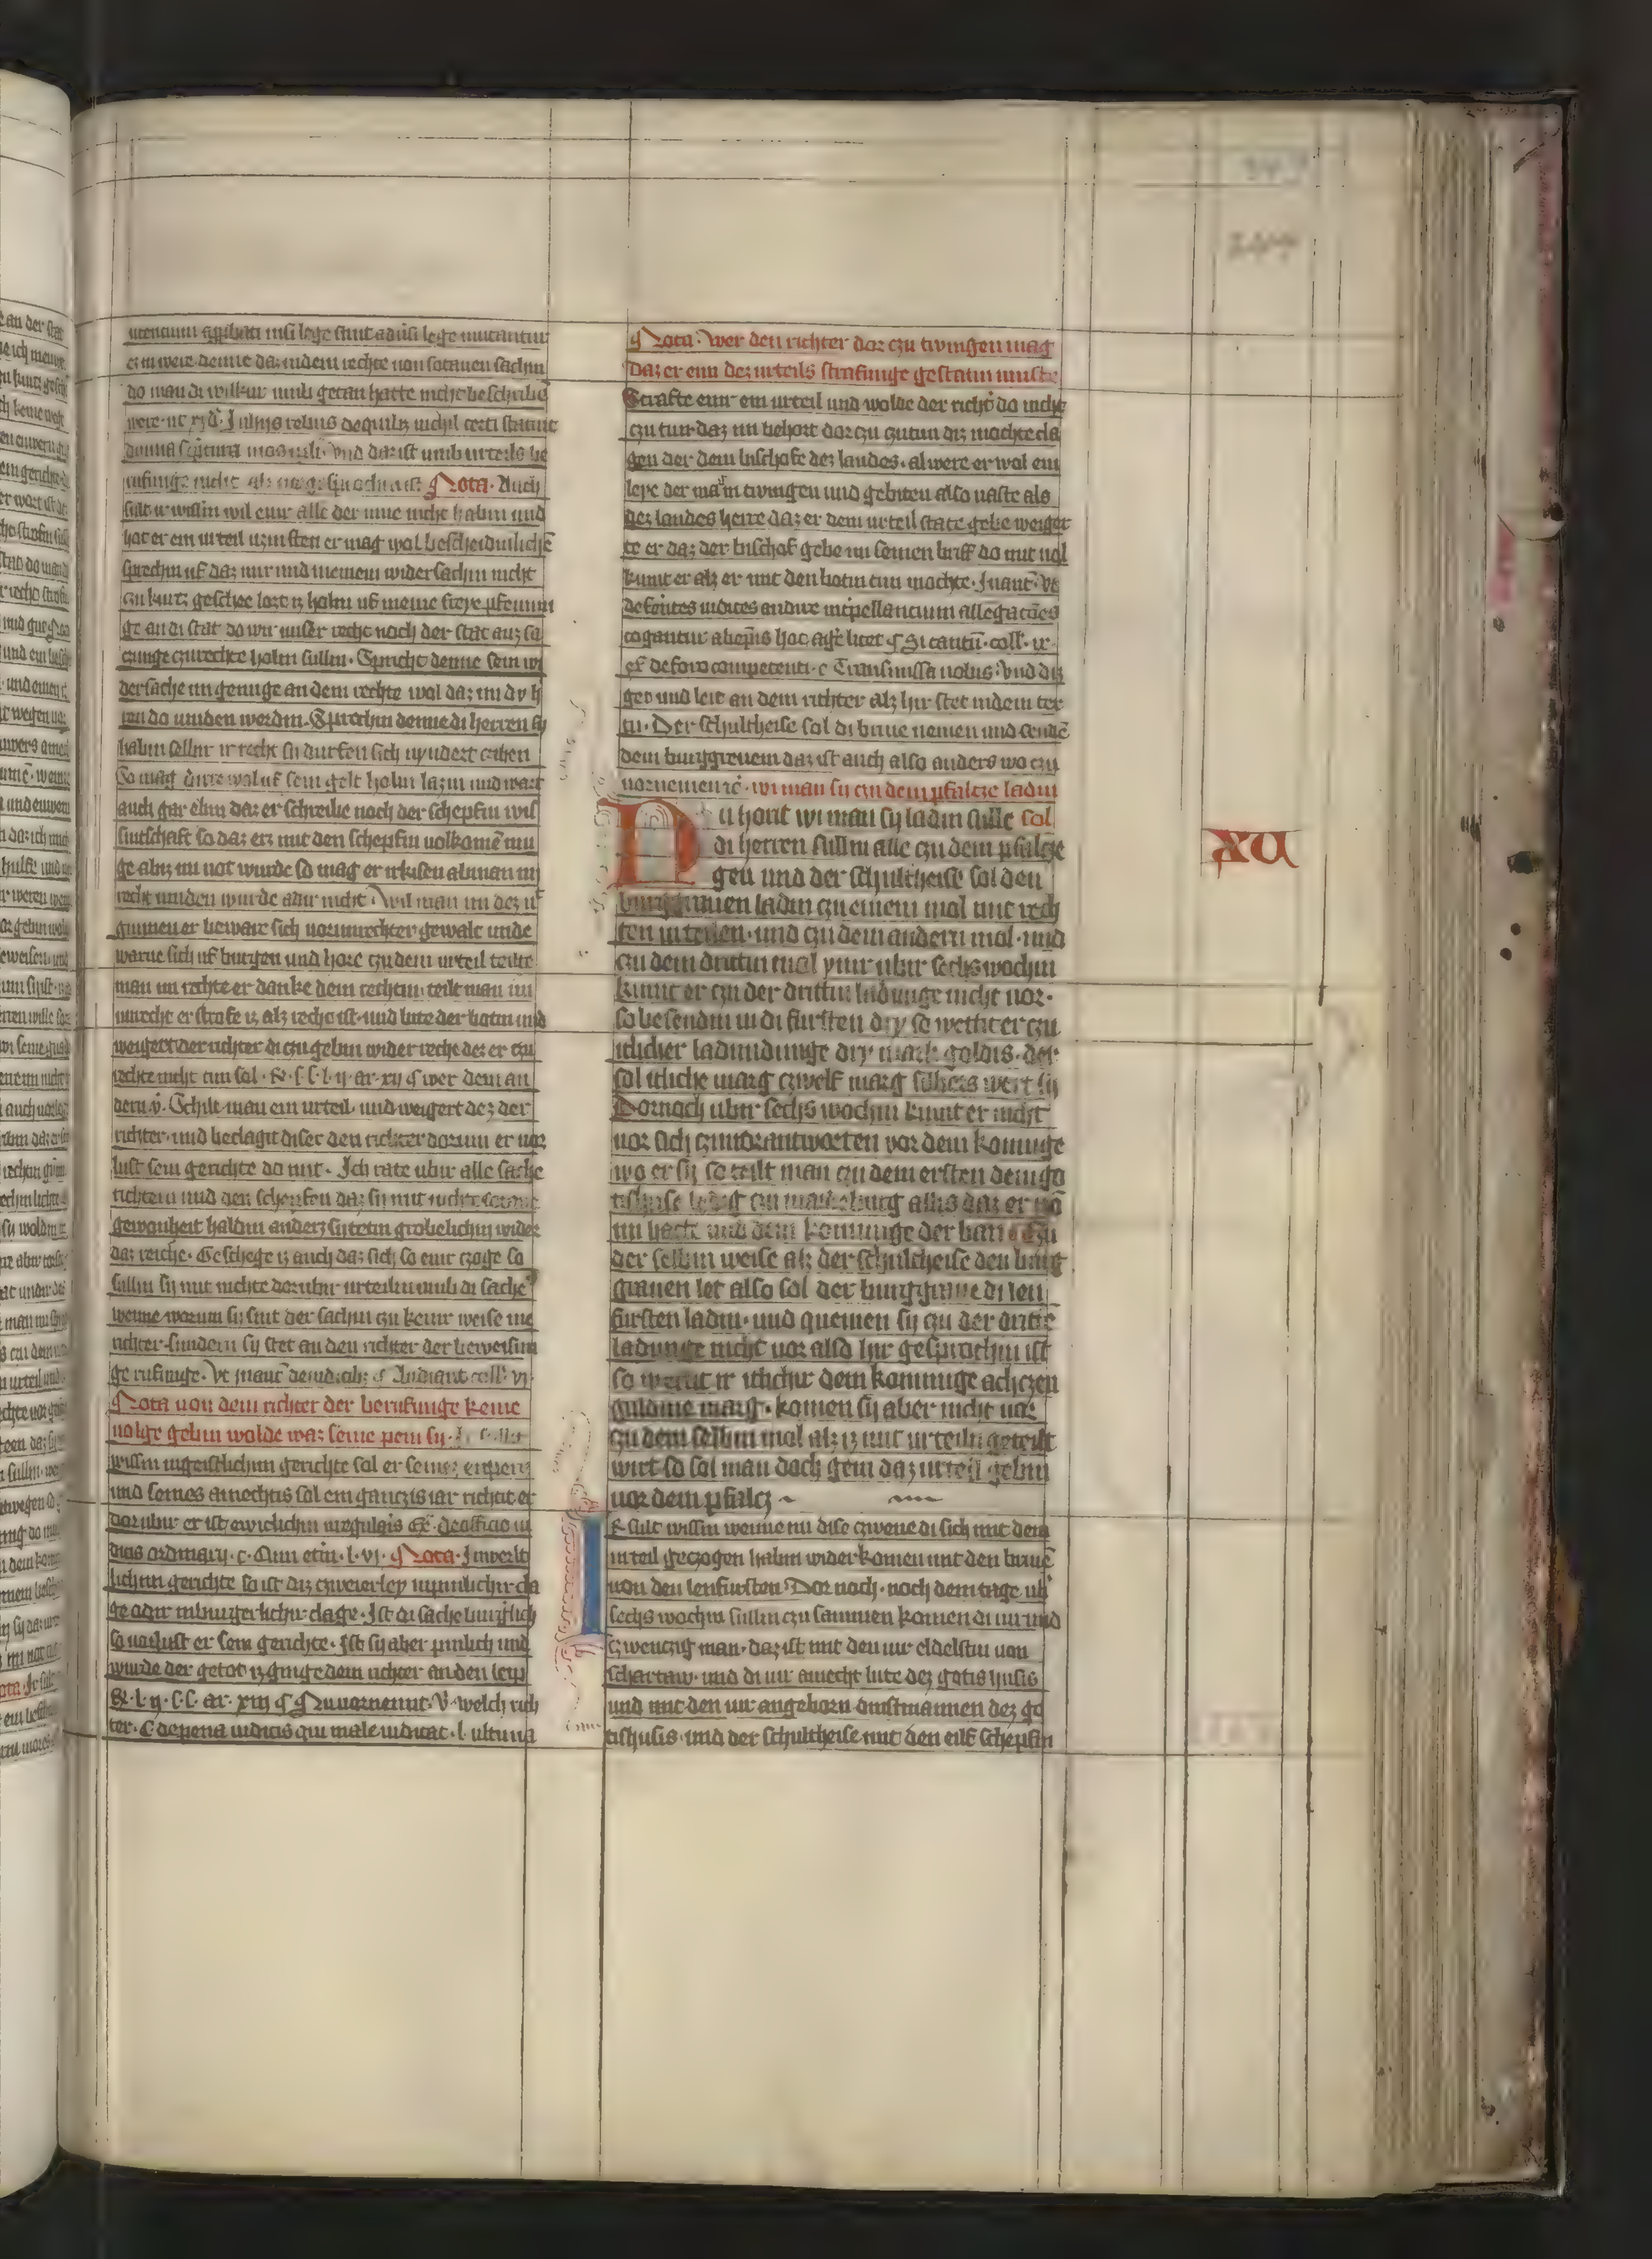 utencium approbati nisi lege sint adusi lege mutantur
ein were denne daz in dem rechte von sotanen sachin
do man di wilkur umb getan hatte nicht beschribin
were ut
donna scriptura und daz ist umb urteils be
rufunge nicht Nota. Auch
sult ir wissin wil eyner alle der nicht habin und
hot er ein urteil er mag wol bescheidinlichē
sprechin uf daz mir und meinem widersachin nicht
czu kurtz geschee lozt iz holin uf meine pfennin
ge an di stat do wir unser recht noch der stat auz sa
czunge czu rechte holin sullin. Spricht denne sein wi
dersache im genuge an dem rechte wol daz im dy h
ren do vinden werdin. Sprechin denne di herren sy
habin selbir ir recht sy durfen sich nyndert
So mag dirre wol uf sein gelt holin lazin und wart
auch gar ebin daz er schreibe noch der schepfin wis
sintschaft so daz erz mit den schepfin volkomē mu
ge abir im not wurde so mag er irkisen ab man im
recht vinden wurde adir nicht. Wil man im dez nͥ
gunnen er beware sich vor unrechter gewalt unde
warne sich uf burgen und hore czu dem urteil teilte
man im rechte er danke dem rechtin. teilt man im
unrecht er strafe iz alz recht ist und bite der botin und
weigert der richter di czu gebin wider recht dez er czu
rechte nicht tun sol. R. l. ij ar. xij ¶ wer dem an
dern v̄. Schilt man ein urteil. und weigert dez der
richter. und beclagit diser den richter dorum er vor
lust sein gerichte do mit. Ich rate ubir alle sache
richtern und den schepfen daz sy mit nichte
gewonheit haldin anderz sy tetin grobelichin wider
daz reiche. Geschege iz auch daz sich so einir czoge so
sullin sy mit nichte dorubir urteilin umb di sache
wenne worum sy sint der sachin czu keinir weise me
richter. sundern sy stet an den richter der beweisun
ge rufunge. Ut in aut. de iudicib; ¶ Audiant coll. vi.
Nota von dem richter der berufunge keine
volge gebin wolde waz seine pein sy.
wissin in geistlichim gerichte sol er seinez
und seines amechtis sol ein ganczis iar richtit er
dorubir er ist ewiclichin irregularis Ex. de officio iu
dicis ordinarij. c. Cum etin. l. vi. ¶ Nota. In werlt
lichim gerichte so ist diz czweierley in pinnlichir cla
ge adir in burgerlichir clage. Ist di sache burglich
so vorlust er sein gerichte. Ist sy aber pinlich und
wurde der getot iz ginge dem richter an den leip
R. l. ij. ar. xiij ¶ Nu vornemt. V. welch rich
ter. C de pena iudicis qui male iudicat. l. ultima
¶ Nota. Wer den richter dor czu twingen mag
Daz er eim dez urteils strafunge gestatin muste
Strafte einir ein urteil und wolde der richt̄ do nicht
czu tun daz im behort dor czu zutun diz mochte cla
gen der dem bischofe dez landes. al were er wol ein
leye der man twingen und gebiten also vaste als
dez landes herre daz er dem urteil state gebe weiger
te er daz der bischof gebe im seinen briff do mit vol
kumt er alz er mit den botin tun mochte. In aut. Ut
differentes iudices audire interpellancium allegacōes
cogantur ab ep̄is hoc aḡe licet ¶ Si tantū. coll. ix.
ex̄ de foro competenti. c Transmissa nobis. Und diz
get und leit an dem richter alz hir stet in dem tex
tu. Der schultheise sol di brive nemen und sendē
dem burggreuem daz ist auch also anders wo czu
vornemen rc̄. wi man sy czu dem pfalcze ladin
Nu hort wi man sy ladin sulle sol
di herren sullin alle czu dem pfalcze
gen und der schultheise sol den
burggrauen ladin czu einem mol mit rech
ten urteilen. und czu dem andern mol. und
czu dem drittin mol ymir ubir sechs wochin
kumt er czu der drittin ladunge nicht vor.
so besendin in di fursten dry so wettit er czu
itlicher ladundunge dry mark goldis. der
sol itliche marg czwelf marg silbers wert sy
Dornoch ubir sechs wochin kumt er nicht
vor sich czu vorantworten vor dem koninge
wo er sy so teilt man czu dem ersten dem go
tishuse ledig czu maideburg allis daz er vō
im hatte und dem koninge der ban. Czu
der selbin weise alz der schultheise den burg
grauen let also sol der burggraue di len
fursten ladin. und quemen sy czu der dritte
ladunge nicht vor also hir gesprochin ist
so wettit ir itlichir dem koninge achczen
guldine marg. komen sy aber nicht vor
czu dem selbin mol alz iz mit urteiln geteilt
wirt so sol man doch gein daz urteil gebin
vor dem pfalcz
Ir sult wissin wenne nu dise czwene di sich mit dem
urteil geczogen habin wider komen mit den brivē
von den lenfursten. Dor noch. noch dem tage ubͥ
sechs wochin sullin czu sammen komen di vir und
czwenczig man. daz ist mit den vir eldelstin von
schartaw. und di vir amecht lute dez gotis husis
und mit den vir angeborn dinstmannen dez go
tishusis. und der schultheise mit den eilf schepfin
XV
247